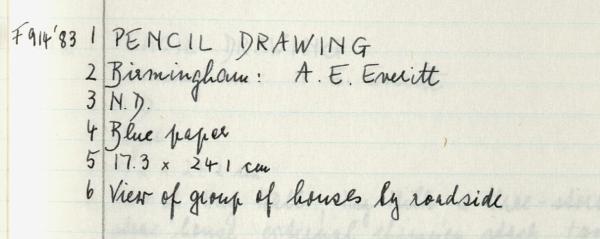 F914'83 1 PENCIL DRAWING
2 Birmingham: A. E. Everitt
3 N.D.
4 Blue paper
5 17.3 x 24.1 cm
6 View of group of houses by roadside